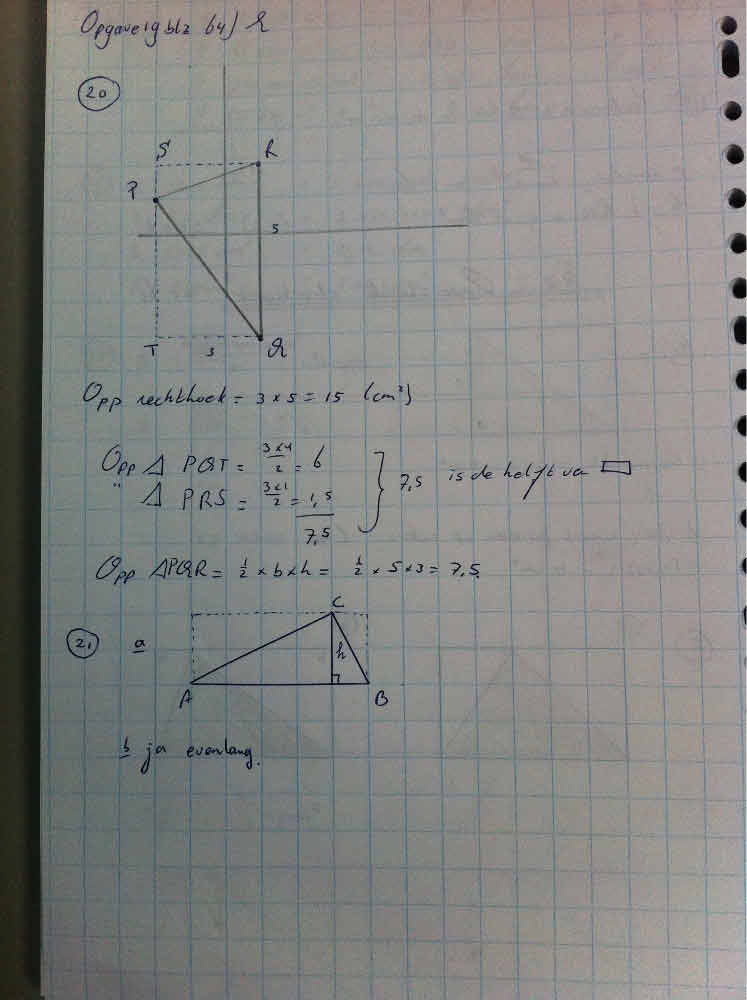 Opgave 19 blz 64)
20
S R
P
5
T 3 Q
Opp rechthoek = 3 x 5 = 15 (cm²)
Opp Δ PQT = 3x4/2 = 6
" Δ PRS = 3x1/2 = 1,5
7,5
} 7,5 is de helft va ▭
Opp ΔPQR = 1/2 x b x h = 1/2 x 5 x 3 = 7,5.
21 a
C
h
A B
b ja evenlang.